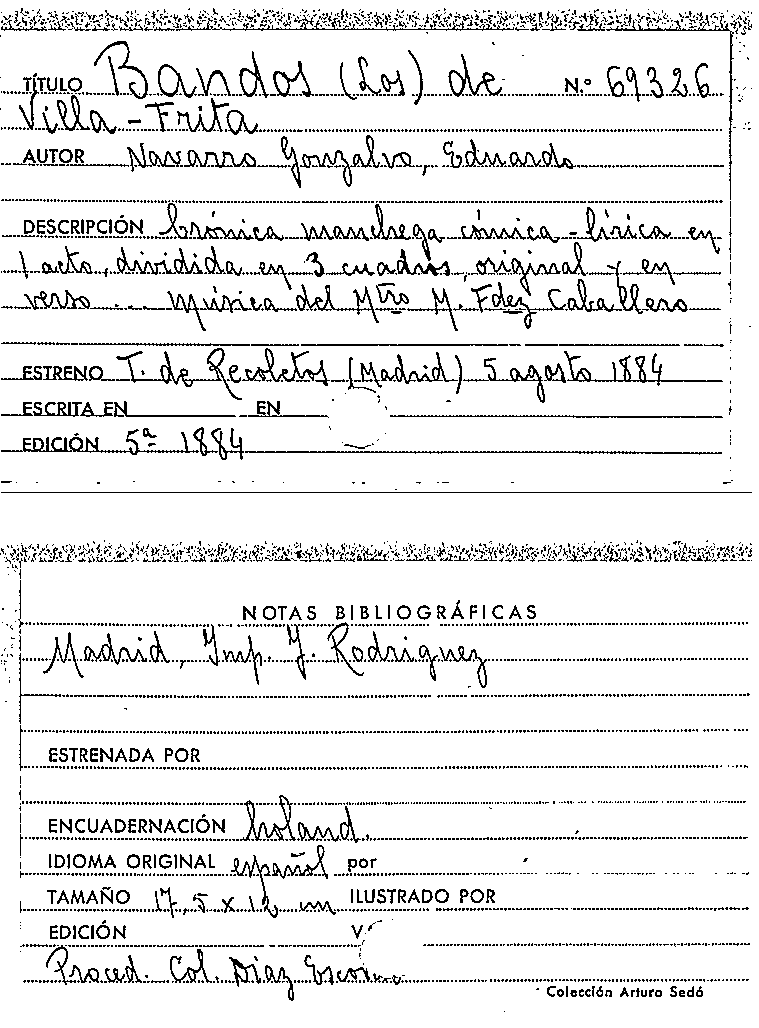 TÍTULO Bandos (Los) de N.º 69326
Villa-Frita
AUTOR Navarro Gonzalvo, Eduardo
DESCRIPCIÓN Crónica manchega cómica-lírica en
1 acto, dividida en 3 cuadros, original y en
verso ... Música del Mtro M. Fdez Caballero
ESTRENO T. de Recoletos (Madrid) 5 agosto 1884
ESCRITA EN EN
EDICIÓN 5ª 1884
NOTAS BIBLIOGRÁFICAS
Madrid, Imp. J. Rodriguez
ESTRENADA POR
ENCUADERNACIÓN holand.
IDIOMA ORIGINAL español por
TAMAÑO 17,5 x 12 cm ILUSTRADO POR
EDICIÓN
Proced. Col. Diaz
Colección Arturo Sedó